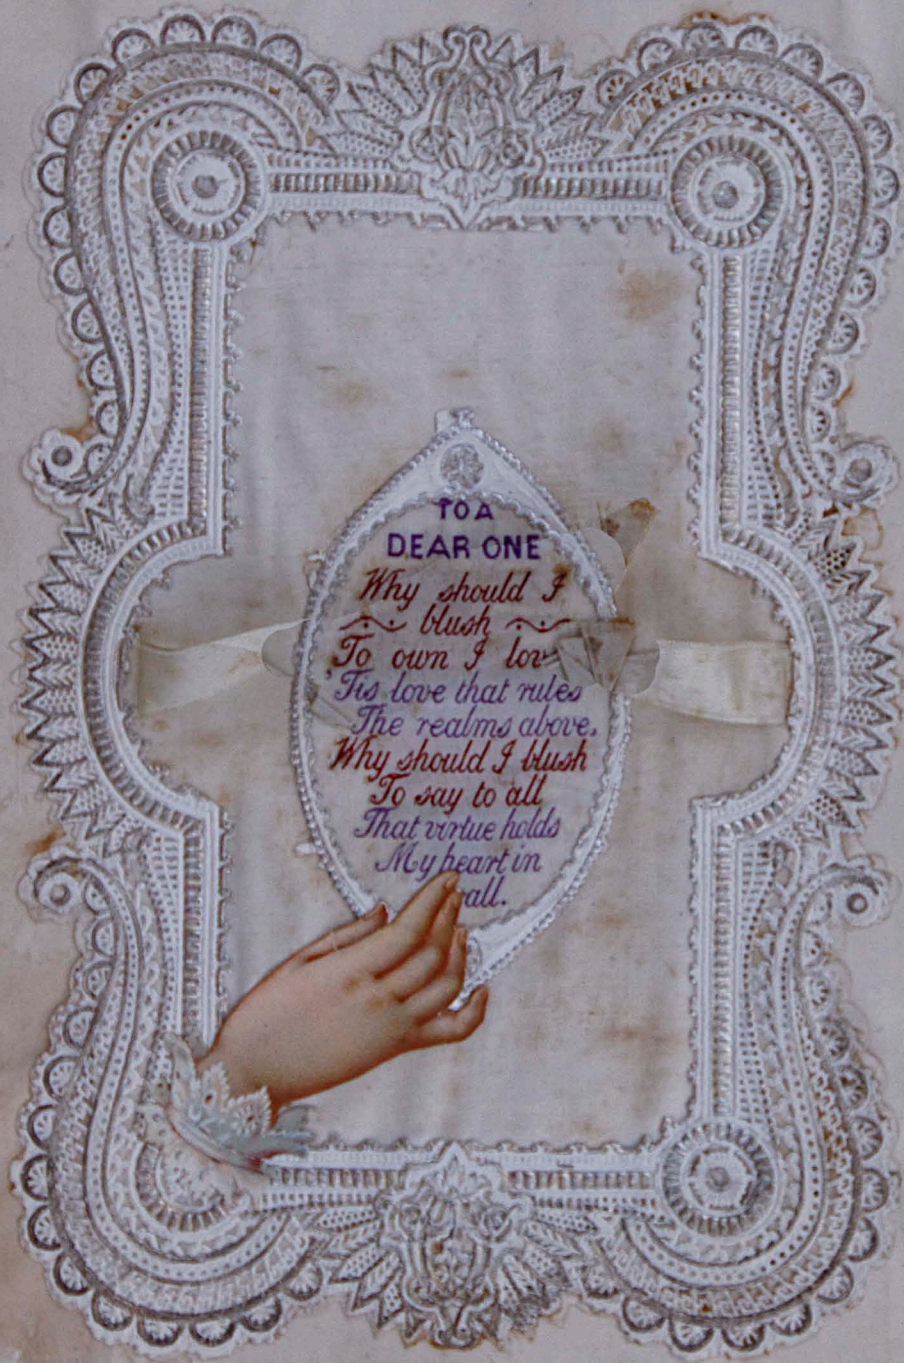 TO A
DEAR ONE
Why should I
blush
To own I lov
'Tis love that rules
The realms above.
Why should I blush
To say to all
That virtue holds
My heart in
all.